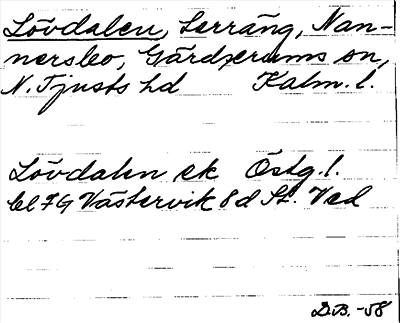 Lövdalen, Serräng, Nan-
nersbo, Gärdserums sn,
N. Tjusts hd Kalm. l.
Lövdalen ek Östg. l.
bl 7G Västervik 8d St. Ved
D.B. -58